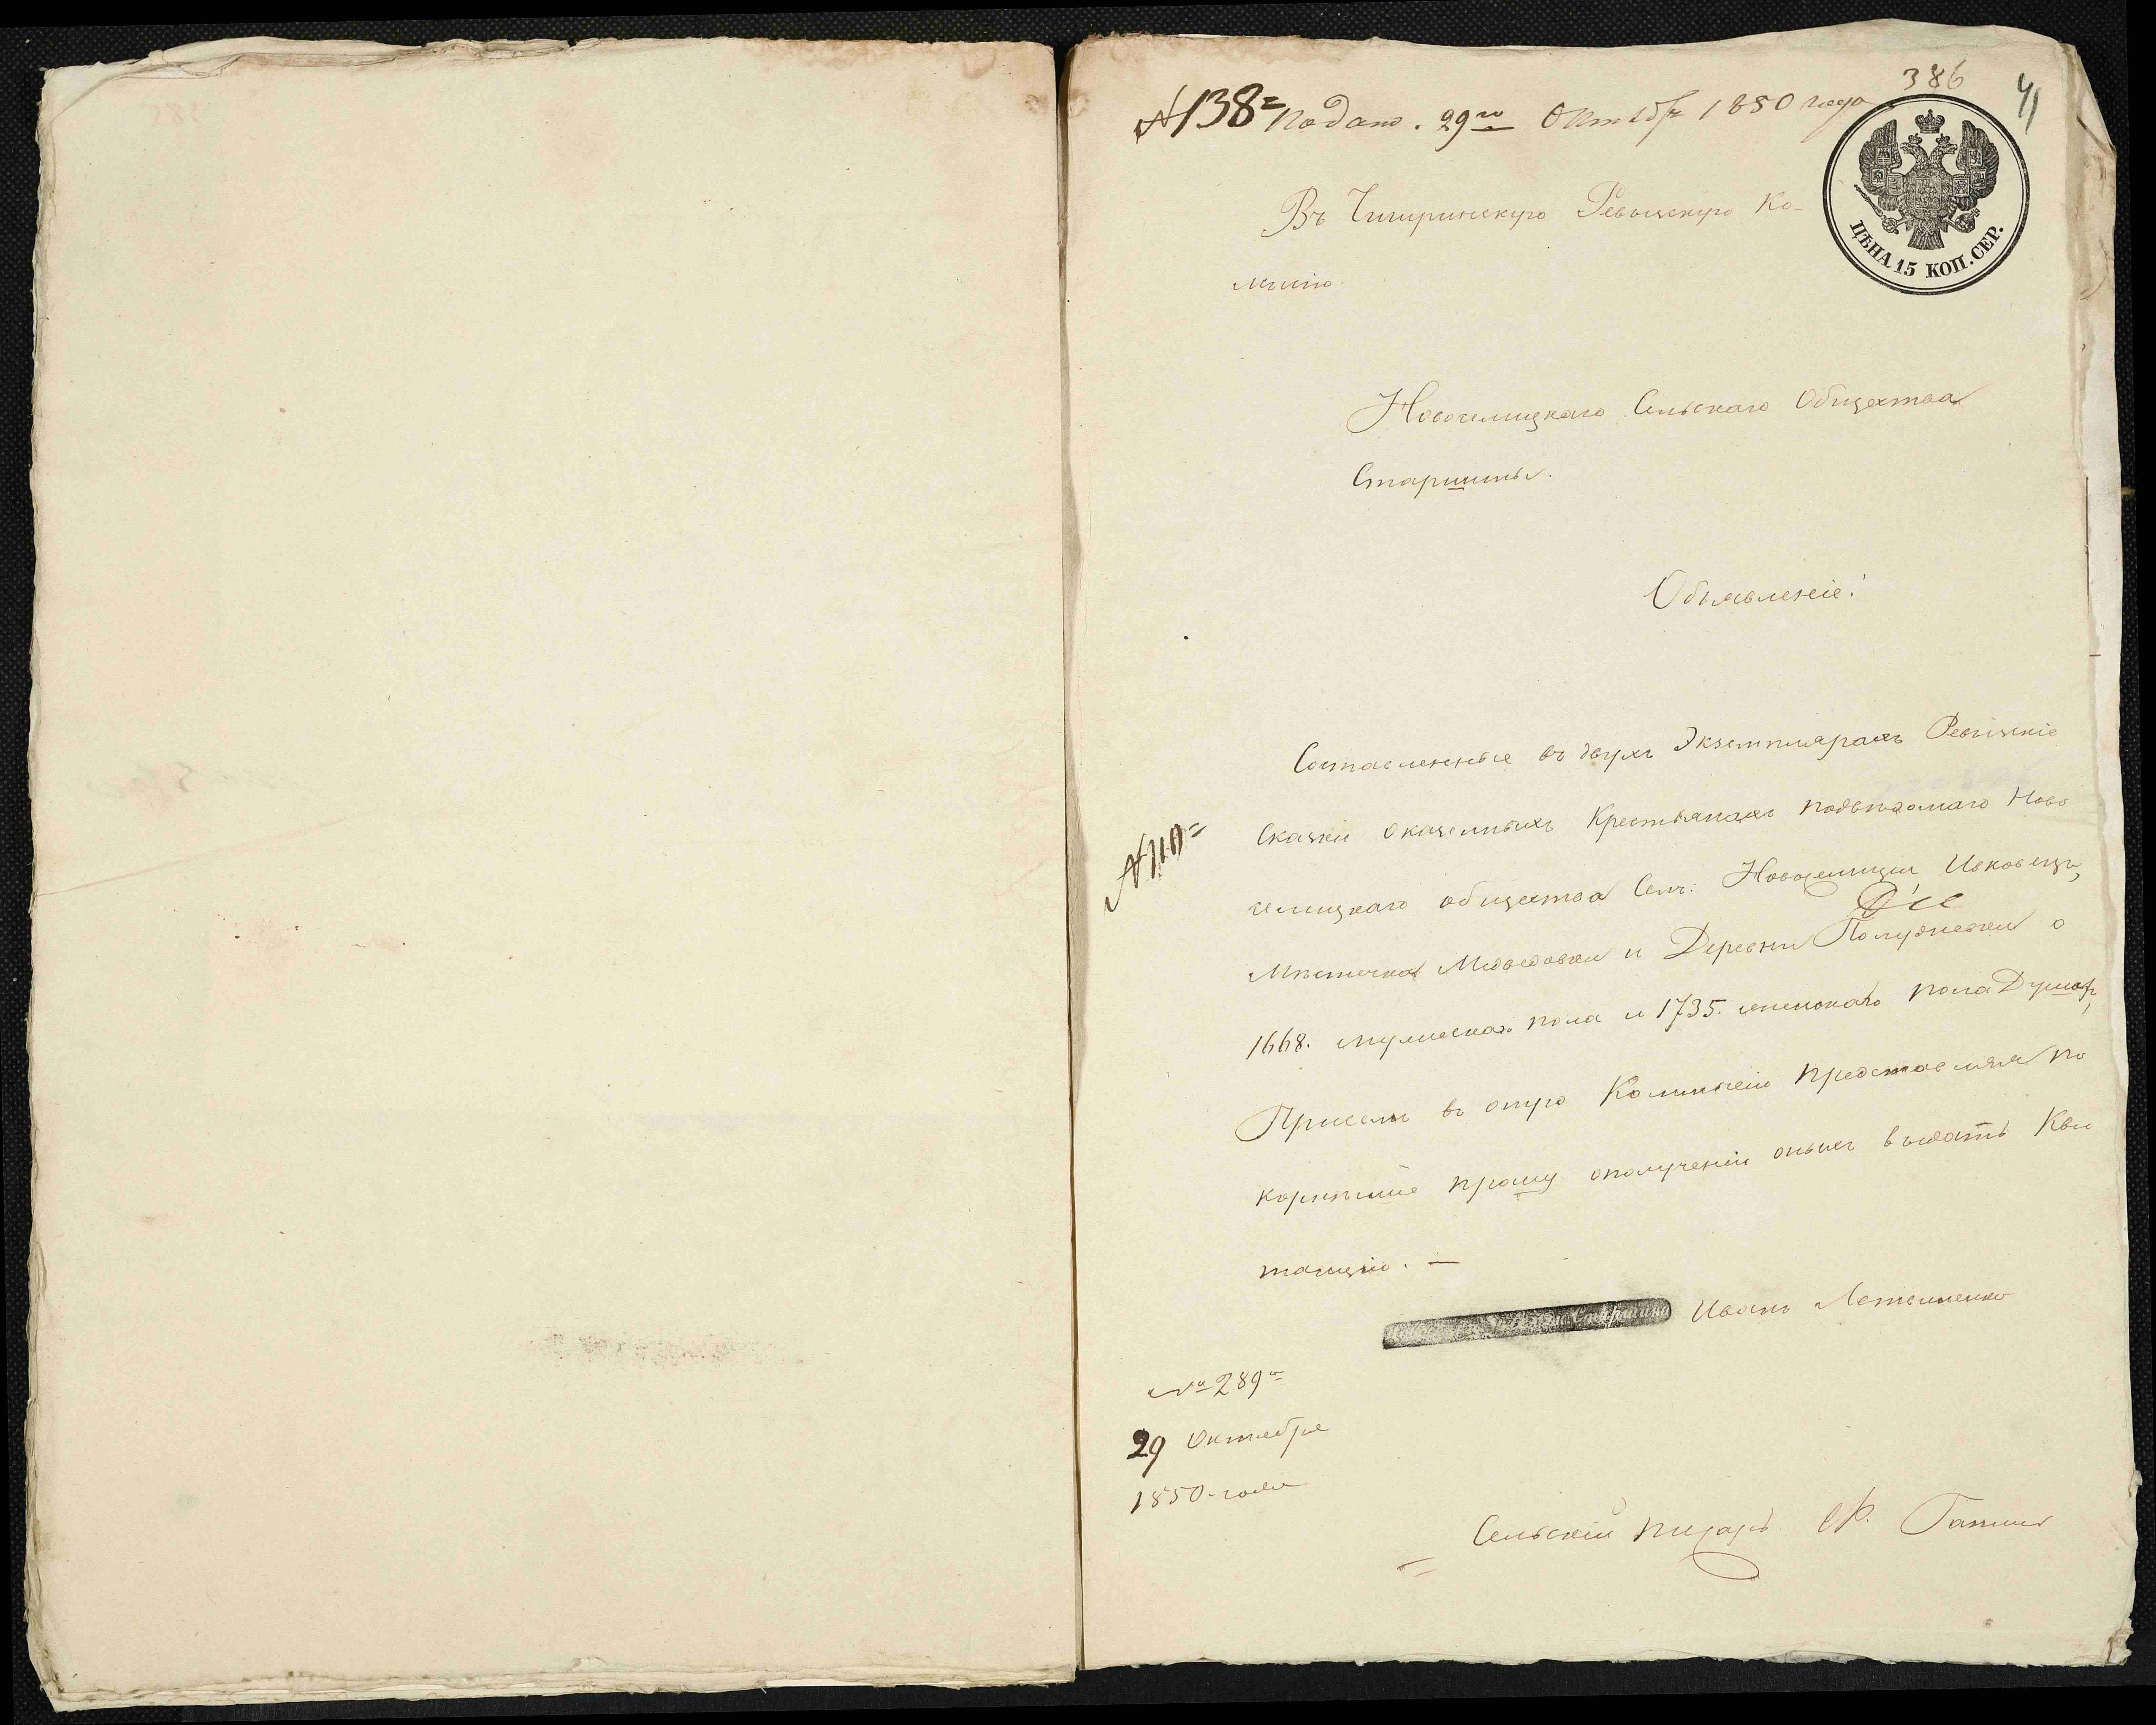 386
41
№138= Подано. 29го Октября 1850 года
ЦѢНА 15 КОП. СЕР.
Въ Чигиринскую Ревизскую Ко-
мисію.
Новоселицкаго Сельскаго Общества
Старшины.
Объявленіе!
Составленные въ двухъ Экземплярахъ Ревизскіе
№110=
Сказки Оказенныхъ Крестьянахъ подвѣдомаго Ново
селицкаго общества Селъ: Новоселицы Ивковецъ,
Мѣстечка Медведовки и Деревни Полудневки о
1668. мужескаго пола и 1735. женскаго пола Душахъ,
При семъ въ оную Комисію представляя по
корнѣйше прошу ополученіи оныхъ выдать Кви
танцію. —
Старшина Иванъ
№289=
29 Октября
1850 года
Сельскій писарь